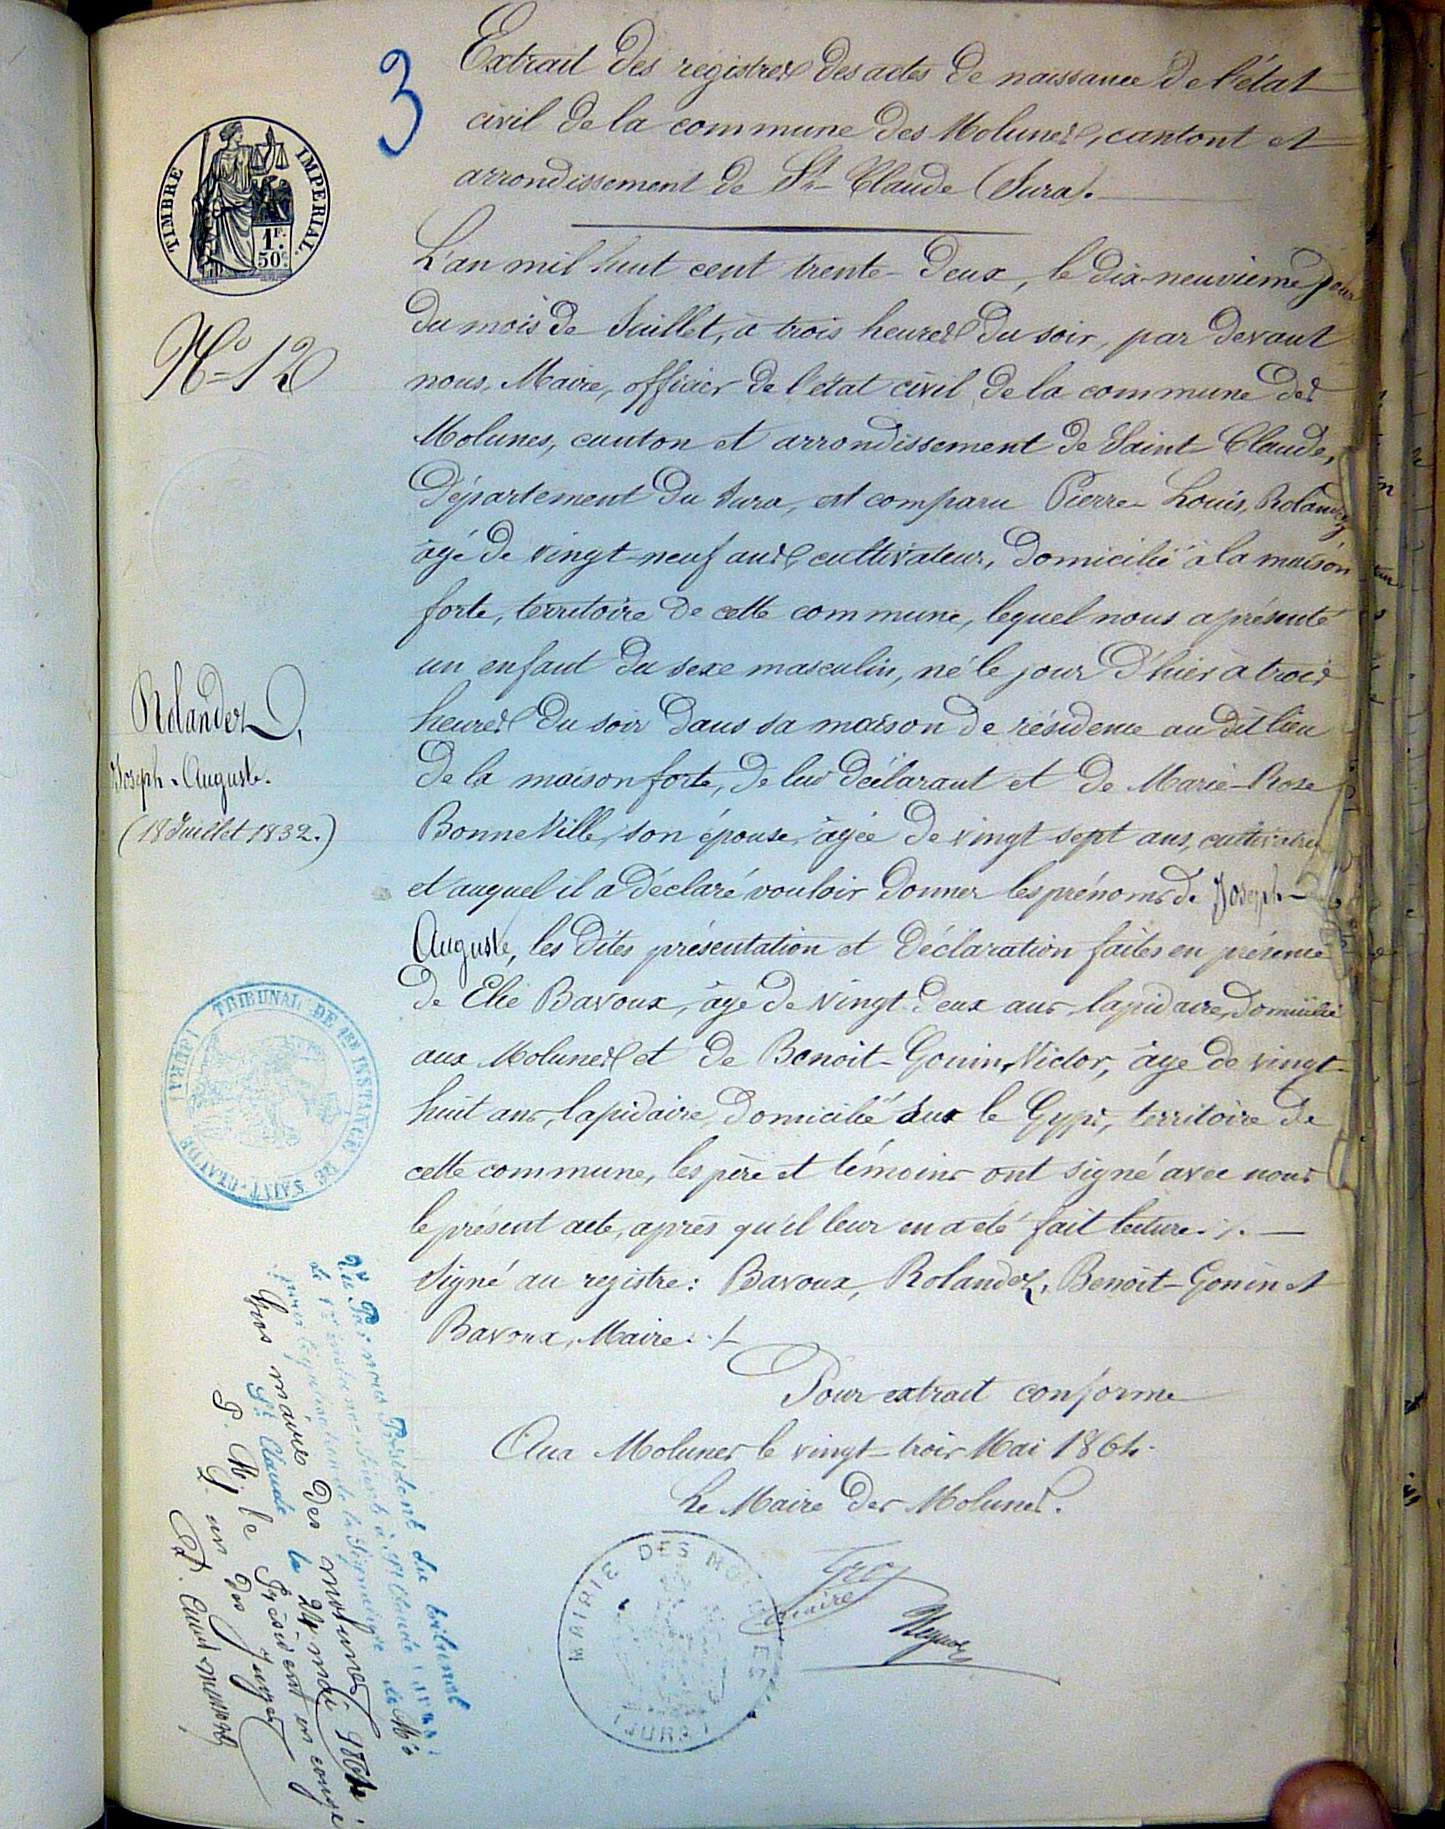 3
Extrait des registres des actes de naissance de l'état
civil de la commune des Molunes, cantont et
arrondissement de St Claude (Jura).
TIMBRE IMPERIAL
1F. 50c
No 12
L'an mil huit cent trente-deux, le dix-neuvième jour
du mois de Juillet, à trois heures du soir, par devant
nous, Maire, officier de l'état civil de la commune des
Molunes, canton et arrondissement de Saint-Claude,
Département du Jura, est comparu Pierre-Louis, Rolandez
âgé de vingt-neuf ans cultivateur, domicilié à la maison
forte, territoire de cette commune, lequel nous a présenté
un enfant du sexe masculin, né le jour d'hier à trois
heures du soir dans sa maison de résidence au dit lieu
de la maison forte, de lui déclarant et de Marie-Rose
BonneVille, son épouse, âgée de vingt sept ans, cultivatrice
et auquel il a déclaré vouloir donner les prénoms de Joseph-
Auguste, les dites présentation et déclaration faites en présence
de Elie Bavoux, âgé de vingt-deux ans, lapidaire, domicilié
aux Molunes et de Benoit-Gonin, Victor, âgé de vingt-
huit ans, lapidaire, domicilié sur le Gyps, territoire de
cette commune, les père et témoins ont signé avec nous
le présent acte, après qu'il leur en a été fait lecture.
Signé au registre: Bavoux, Rolandez, Benoit-Gonin et
Bavoux, Maire.
Rolandez,
Joseph-Auguste.
(18 Juillet 1832.)
TRIBUNAL DE 1ERE INSTANCE DE SAINT-CLAUDE (JURA)
Pour extrait conforme
Aux Molunes le vingt-trois Mai 1864.
Le Maire des Molunes.
MAIRIE DES MOLUNES
(JURA)
maire
Vu Par nous Président du tribunal
de 1re instance séant à St Claude (Jura)
pour légalisation de la signature de Mr
Gros maire des molunes
St Claude le 24 mai 1864
P. M. le Président en congé
un des juges